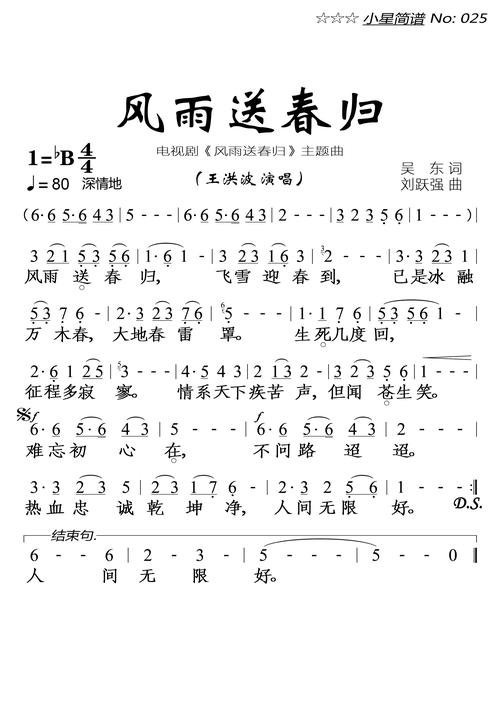 ☆☆☆ 小星简谱 No: 025
风雨送春归
电视剧《风雨送春归》主题曲
1=♭B 4/4
♩=80 深情地
(王洪波 演唱)
吴 东 词
刘跃强 曲
(6·6 5·6 4 3 | 5 - - - | 6·6 5·6 4 3 | 2 - - - | 3 2 3 5 6 | 1 - - - )|
3 2 1 5 3 5 6 | 1· 6 1 - | 3 2 3 1 6 3 | 2 - - - | 3· 3 2 3 1 |
风雨 送 春 归, 飞雪 迎 春 到, 已是 冰 融
5 3 7 6 - | 2· 3 2 3 7 6 | 5 - - - | 1· 1 7 6 | 5 3 5 6 1 - |
万 木春, 大地春 雷 罩。 生死几度 回,
2· 6 1 2 5 | 3 - - - | 4· 5 4 3 2 1 2 | 3 - - - | 3 2 3 5 6 | 1 - - - |
征程多寂 寥。 情系天下疾苦 声, 但闻 苍生 笑。
f f
6· 6 5· 6 4 3 | 5 - - - | 6· 6 5· 6 4 3 | 2 - - - |
难忘初 心 在, 不问路 迢 迢。
3· 3 2 3 5 | 2 3 1 7 6 - | 2· 3 2 5 6 | 1 - - - :‖
热血忠 诚乾 坤 净, 人间无限 好。 D.S.
结束句.
6 - - 6 | 2 - 3 - | 5 - - - | 5 - - 0 ‖
人 间 无 限 好。